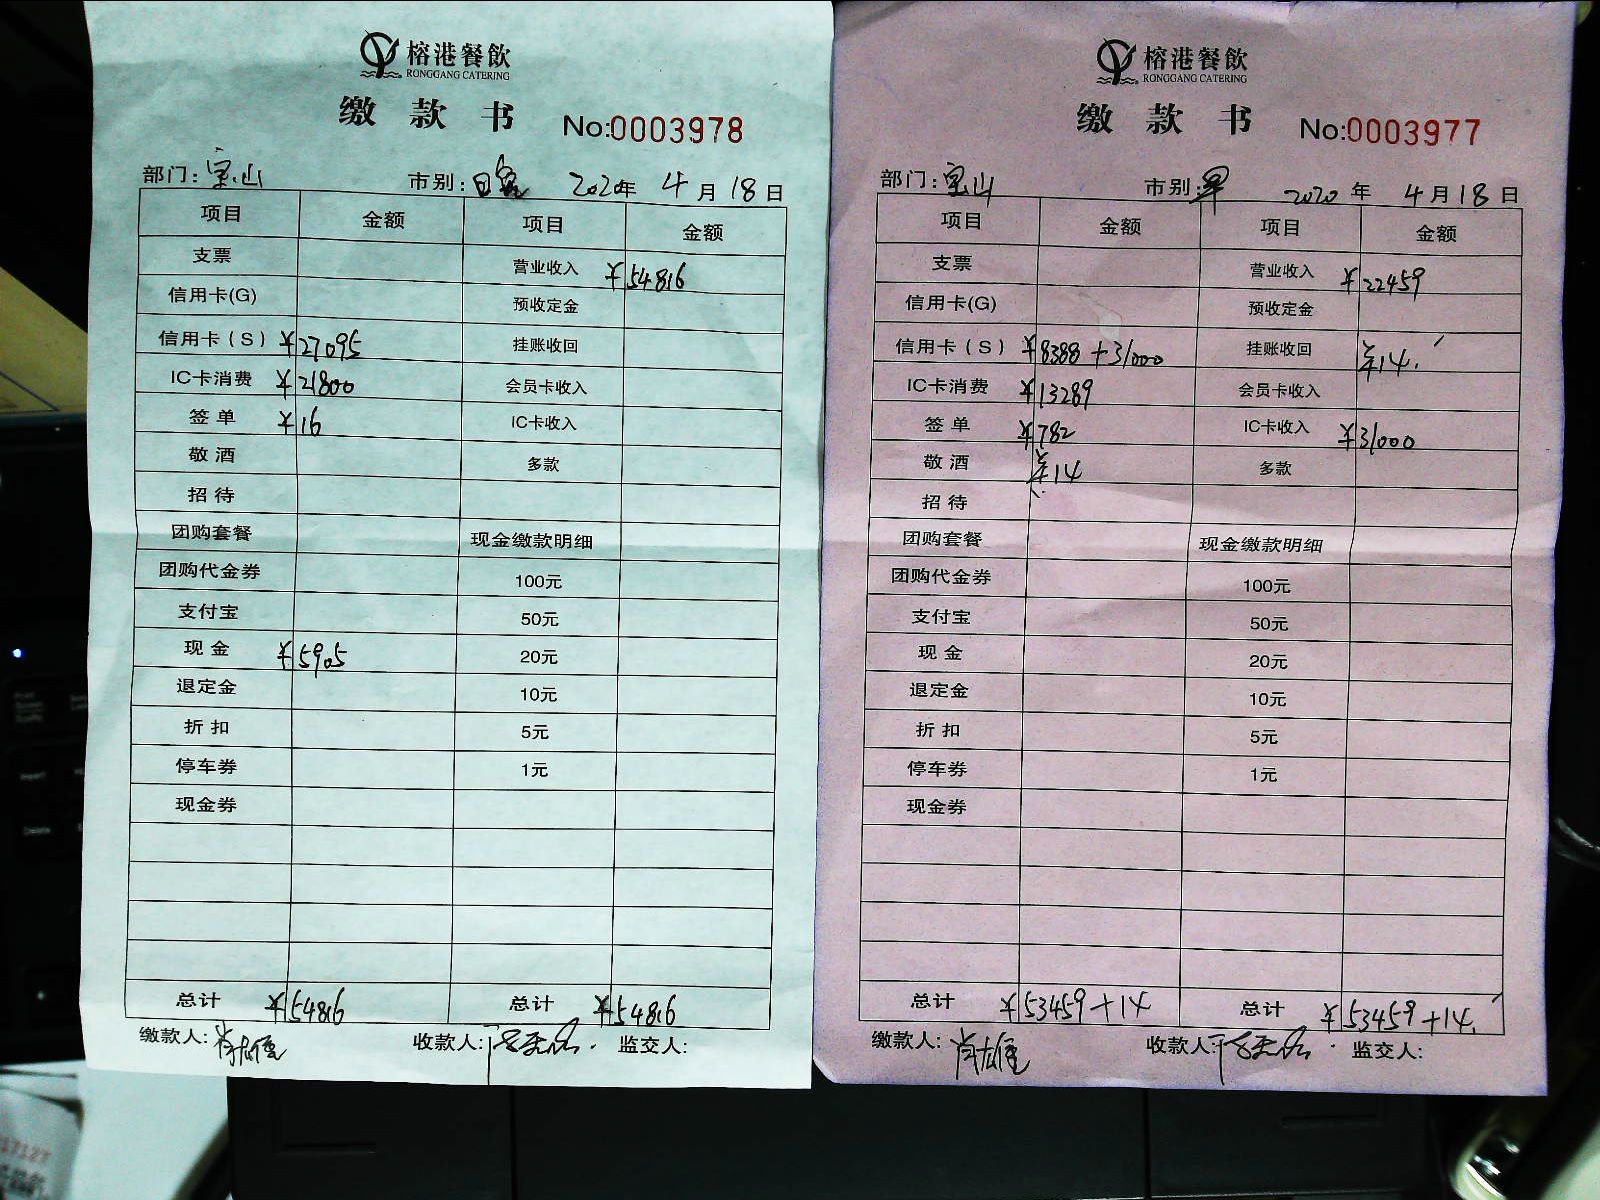 榕港餐飲
RONGGANG CATERING
缴款书 No:0003978
部门: 宝山 市别: 2020年 4月18日
项目 金额 项目 金额
支票 营业收入 ¥54816
信用卡(G) 预收定金
信用卡(S) ¥27095 挂账收回
IC卡消费 ¥21800 会员卡收入
签单 ¥16 IC卡收入
敬酒 多款
招待
团购套餐 现金缴款明细
团购代金券 100元
支付宝 50元
现金 ¥5905 20元
退定金 10元
折扣 5元
停车券 1元
现金券
总计 ¥54816 总计 ¥54816
缴款人: 收款人: 监交人:
榕港餐飲
RONGGANG CATERING
缴款书 No:0003977
部门: 宝山 市别: 早 2020年 4月18日
项目 金额 项目 金额
支票 营业收入 ¥22459
信用卡(G) 预收定金
信用卡(S) ¥8388+31000 挂账收回 羊14.
IC卡消费 ¥13289 会员卡收入
签单 ¥782 IC卡收入 ¥31000
敬酒 羊14 多款
招待
团购套餐 现金缴款明细
团购代金券 100元
支付宝 50元
现金 20元
退定金 10元
折扣 5元
停车券 1元
现金券
总计 ¥53459+14 总计 ¥53459+14.
缴款人: 收款人: 监交人:
17127